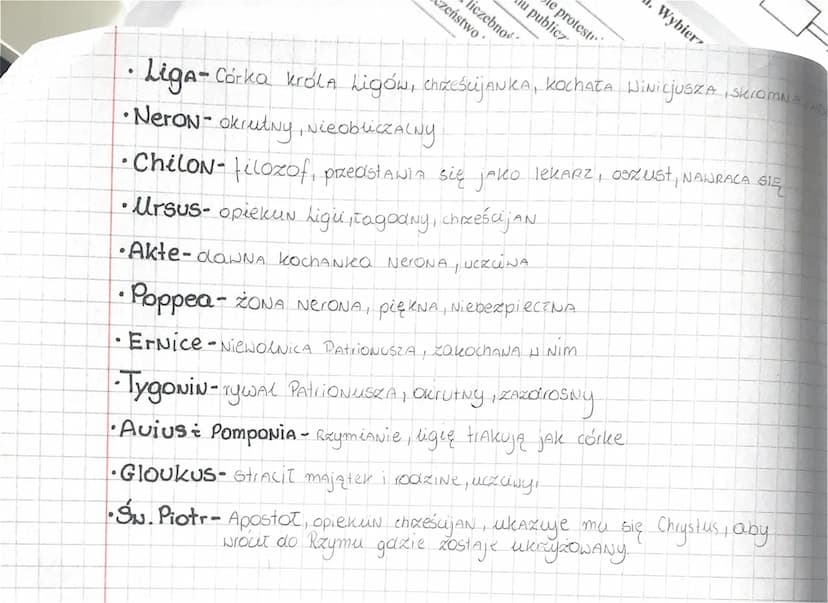 czeństwo
liczebnoś
nu publicz
ie protestu
Wybierz
• Liga - Córka króla Ligów, chrześcijanka, kochała Winicjusza, skromna
• Neron - okrutny, nieobliczalny
• Chilon - filozof, przedstawia się jako lekarz, oszust, nawraca się
• Ursus - opiekun Ligii, łagodny, chrześcijan
• Akte - dawna kochanka Nerona, uczciwa
• Poppea - żona Nerona, piękna, niebezpieczna
• Ernice - niewolnica Patrionusza, zakochana w nim
• Tygonin - rywal Patrionusza, okrutny, zazdrosny
• Avius i Pomponia - Rzymianie, ligię traktują jak córke
• Gloukus - stracił majątek i rodzine, uczciwy
• Św. Piotr - Apostoł, opiekun chrześcijan, ukazuje mu się Chrystus, aby
wrócił do Rzymu gdzie zostaje ukrzyżowany.